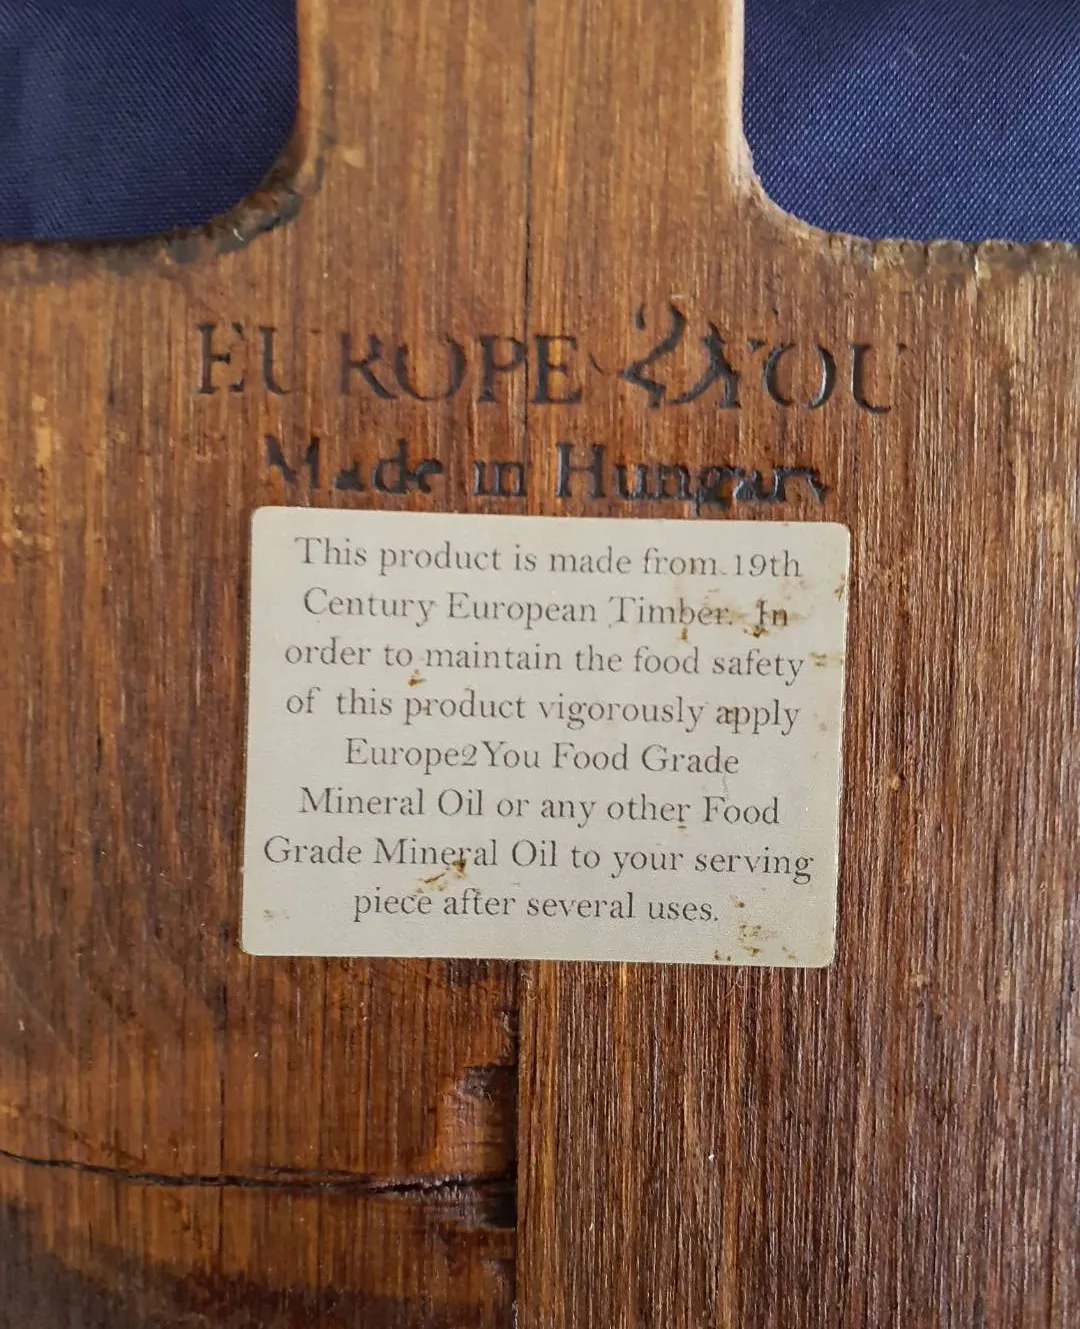 EUROPE 2 YOU
Made in Hungary
This product is made from 19th
Century European Timber. In
order to maintain the food safety
of this product vigorously apply
Europe2You Food Grade
Mineral Oil or any other Food
Grade Mineral Oil to your serving
piece after several uses.